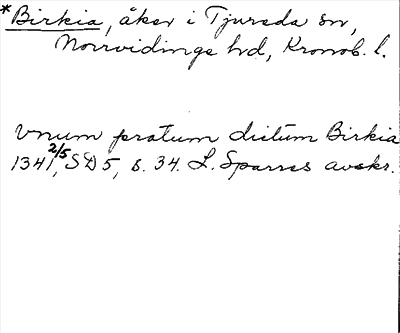 *Birkia, åker i Tjureda sn,
Norrvidinge hd, Kronob. l.
vnum pratum dictum Birkia
1341 2/5, SD 5, s. 34. L. Sparres avskr.